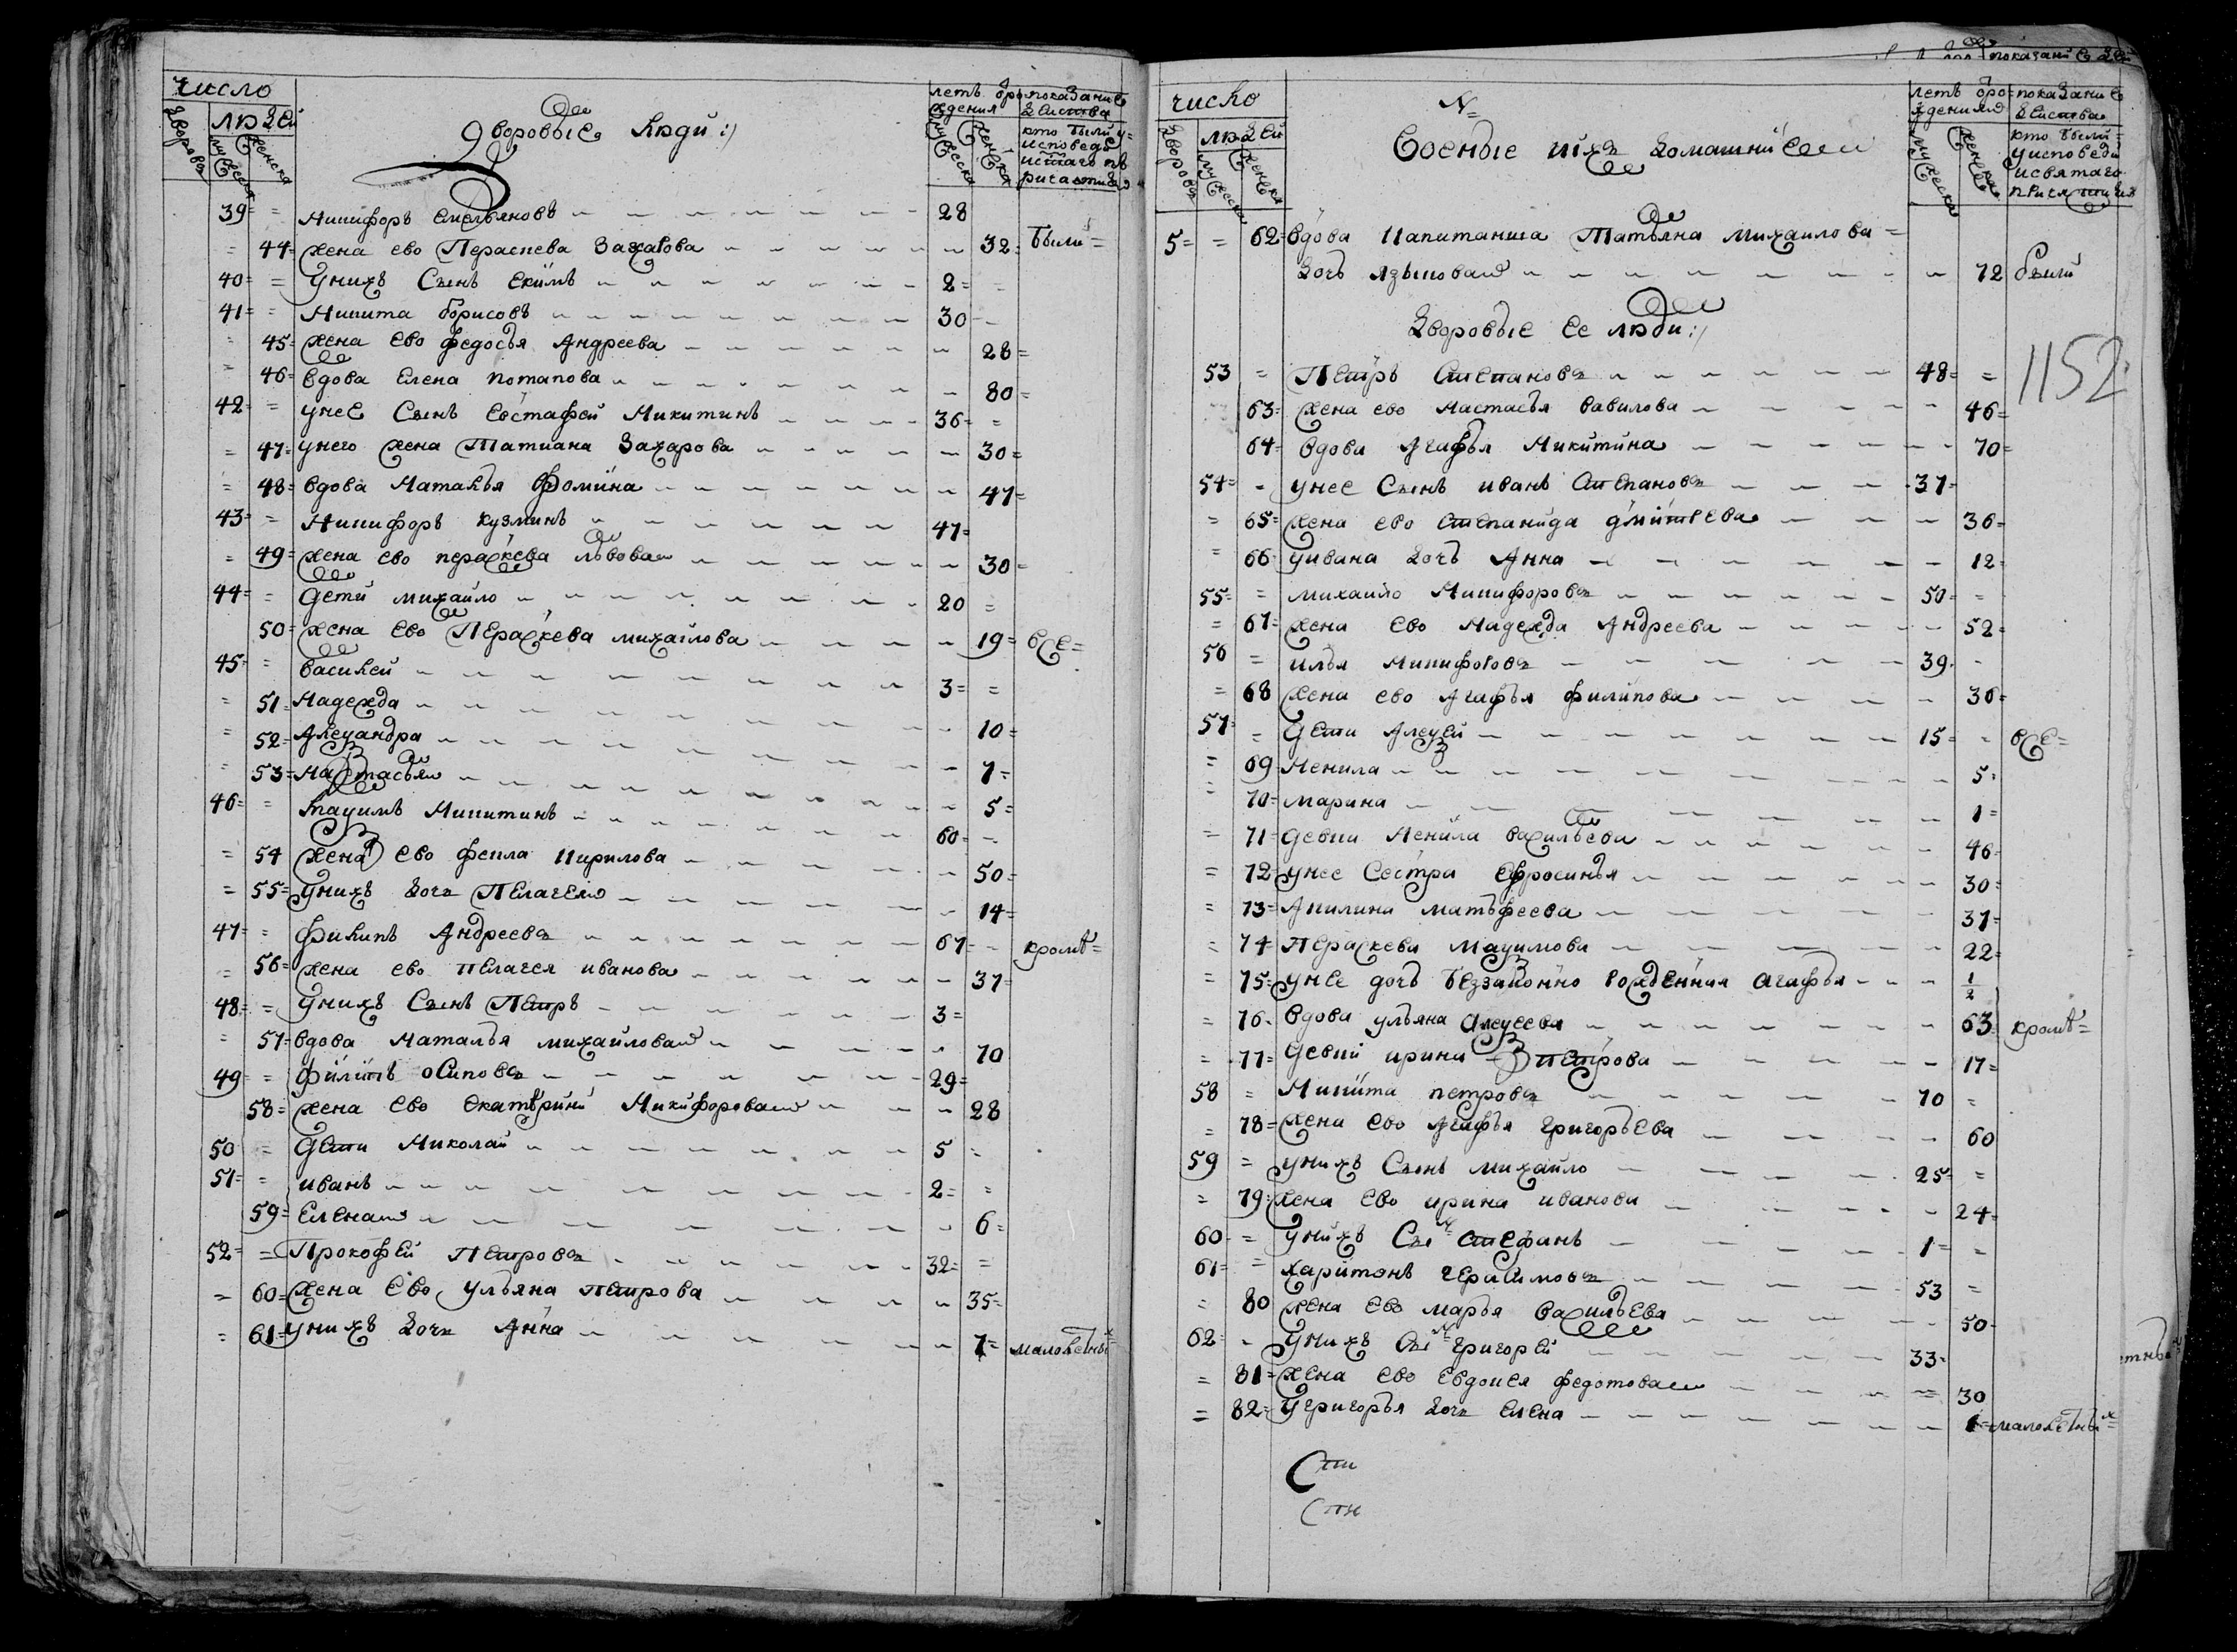 число
летъ ѿ рождения
показание действа
дворовъ
людей
мужеска
женска
Дворовые люди :/
мужеска
женска
кто были у исповеди и стаго причастия
39= = Никифоръ Емельяновъ 28
= 44= жена ево Пераскева Захарова 32= были=
40= = у нихъ сынъ Екимъ 2=
41= = Никита Борисовъ 30
45= жена ево Федосья Андреева 28=
= 46= вдова Елена Потапова 80=
42= = у нее сынъ Евстафей Никитинъ 36=
= 47= у него жена Татиана Захарова 30=
= 48= вдова Наталья Фомина 47=
43= = Никифоръ Кузминъ 47=
= 49= жена ево Параскева Львова 30=
44= = дети Михайло 20 =
50= жена ево Пераскева Михайлова 19= все=
45= = Василей 3= =
= 51= Надежда 10=
= 52= Алеѯандра 7=
= 53= Настасья 5=
46= = Маѯимъ Никитинъ 60=
= 54 жена ево Фекла Кирилова 50=
= 55= у нихъ дочь Пелагея 14=
47= = Филипъ Андреевъ 67= кромѣ=
= 56= жена ево Пелагея Иванова 37=
48= = у нихъ сынъ Петръ 3=
= 57= вдова Наталья Михайлова 70
49= = Филипъ Осиповъ 29=
58= жена ево Екатѣрина Никифорова 28
50 = дети Николай 5 =
51= = Иванъ 2= =
59= Елена 6=
52= = Прокофей Петровъ 32= =
= 60= жена ево Ульяна Петрова 35=
= 61= у нихъ дочь Анна 1= малолетных
показание дей
число
летъ ѿ рождения
показание действа
дворовъ
людей
мужеска
женска
№
Военые и ихъ домашние
мужеска
женска
кто были у исповеди и святаго причастия
5= = 62= вдова капитанша Татьяна Михаилова
дочь Языкова 72 были
Дворовые ее люди :/
1152
53 = Петръ Степановъ 48= =
63= жена ево Настасья Вавилова 46=
64= вдова Агафья Никитина 70=
54= = у нее сынъ Иванъ Степановъ 37=
= 65= жена ево Степанида Дмитрева 36=
= 66 у Ивана дочь Анна 12=
55= = Михайло Никифоровъ 50= =
= 67= жена ево Надежда Андреева 52=
56 = Илья Никифоровъ 39
= 68 жена ево Агафья Филипова 36=
57= = дети Алеѯей 15= = все=
= 69= Ненила 5=
= 70= Марина 1=
= 71= девки Ненила Васильева 46=
= 72= у нее сестра Ефросинья 30=
= 73= Акилина Матьфеева 37=
= 74= Пераскева Маѯимова 22=
= 75= у нее дочь беззаконно рожденная Агафья 1/2
= 76= вдова Ульяна Алеѯеева 63 кромѣ=
= 77= девки Ирина Петрова 17=
58 = Никита Петровъ 70 =
= 78= жена ево Агафья Григорьева 60
59 = у нихъ сынъ Михайло 25= =
= 79= жена ево Ирина Иванова 24=
60= = у нихъ сын Стефанъ 1= =
61= = Харитонъ Герасимовъ 53 =
= 80 жена ево Марья Васильева 50=
62= = у нихъ сын Григорей 33=
= 81= жена ево Евдокея Федотова 30
= 82= у Григорья дочь Елена 1= малолетных